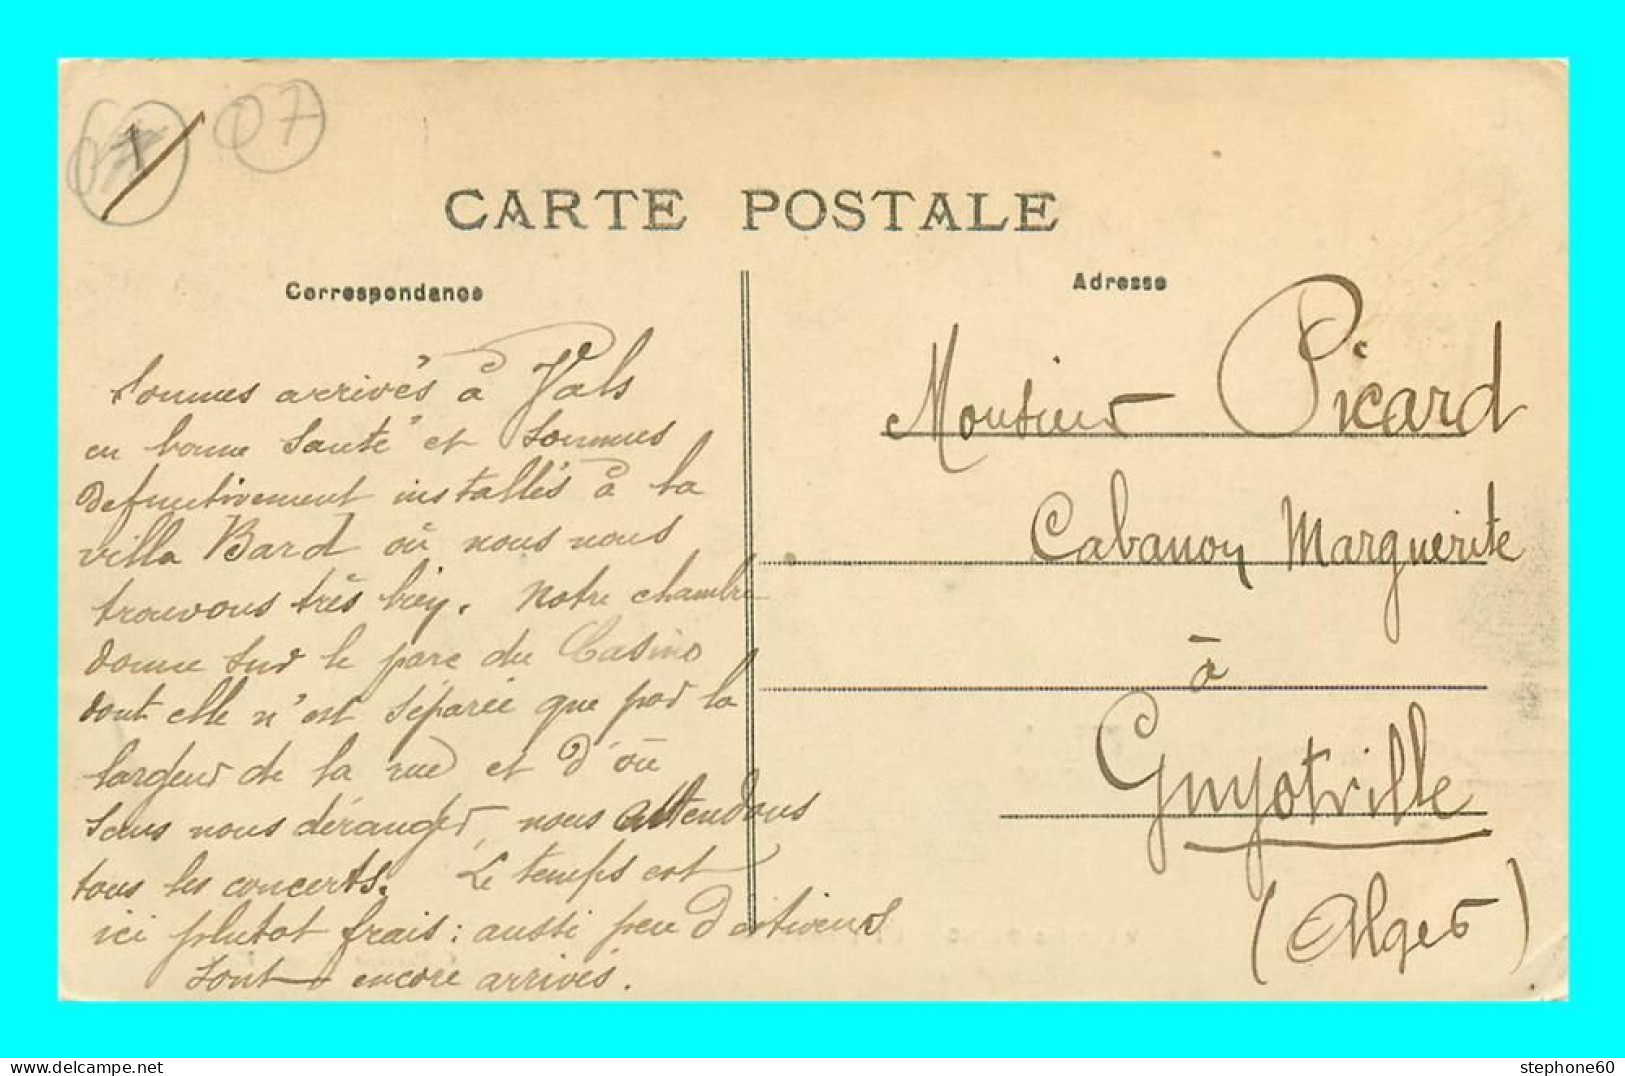 07
CARTE POSTALE
Correspondance
Adresse
Sommes arrivés à Vals
en bonne santé et sommes
définitivement installés à la
villa Bard où nous nous
trouvons très bien. Notre chambre
donne sur le parc du Casino
dont elle n'est séparée que par la
largeur de la rue et d'où
sans nous déranger, nous attendons
tous les concerts. Le temps est
ici plutot frais : aussi peu d'estiveurs
sont encore arrivés.
Monsieur Picard
Cabanon Marguerite
à
Guyotville
(Alger)
delcampe.net
stephone60